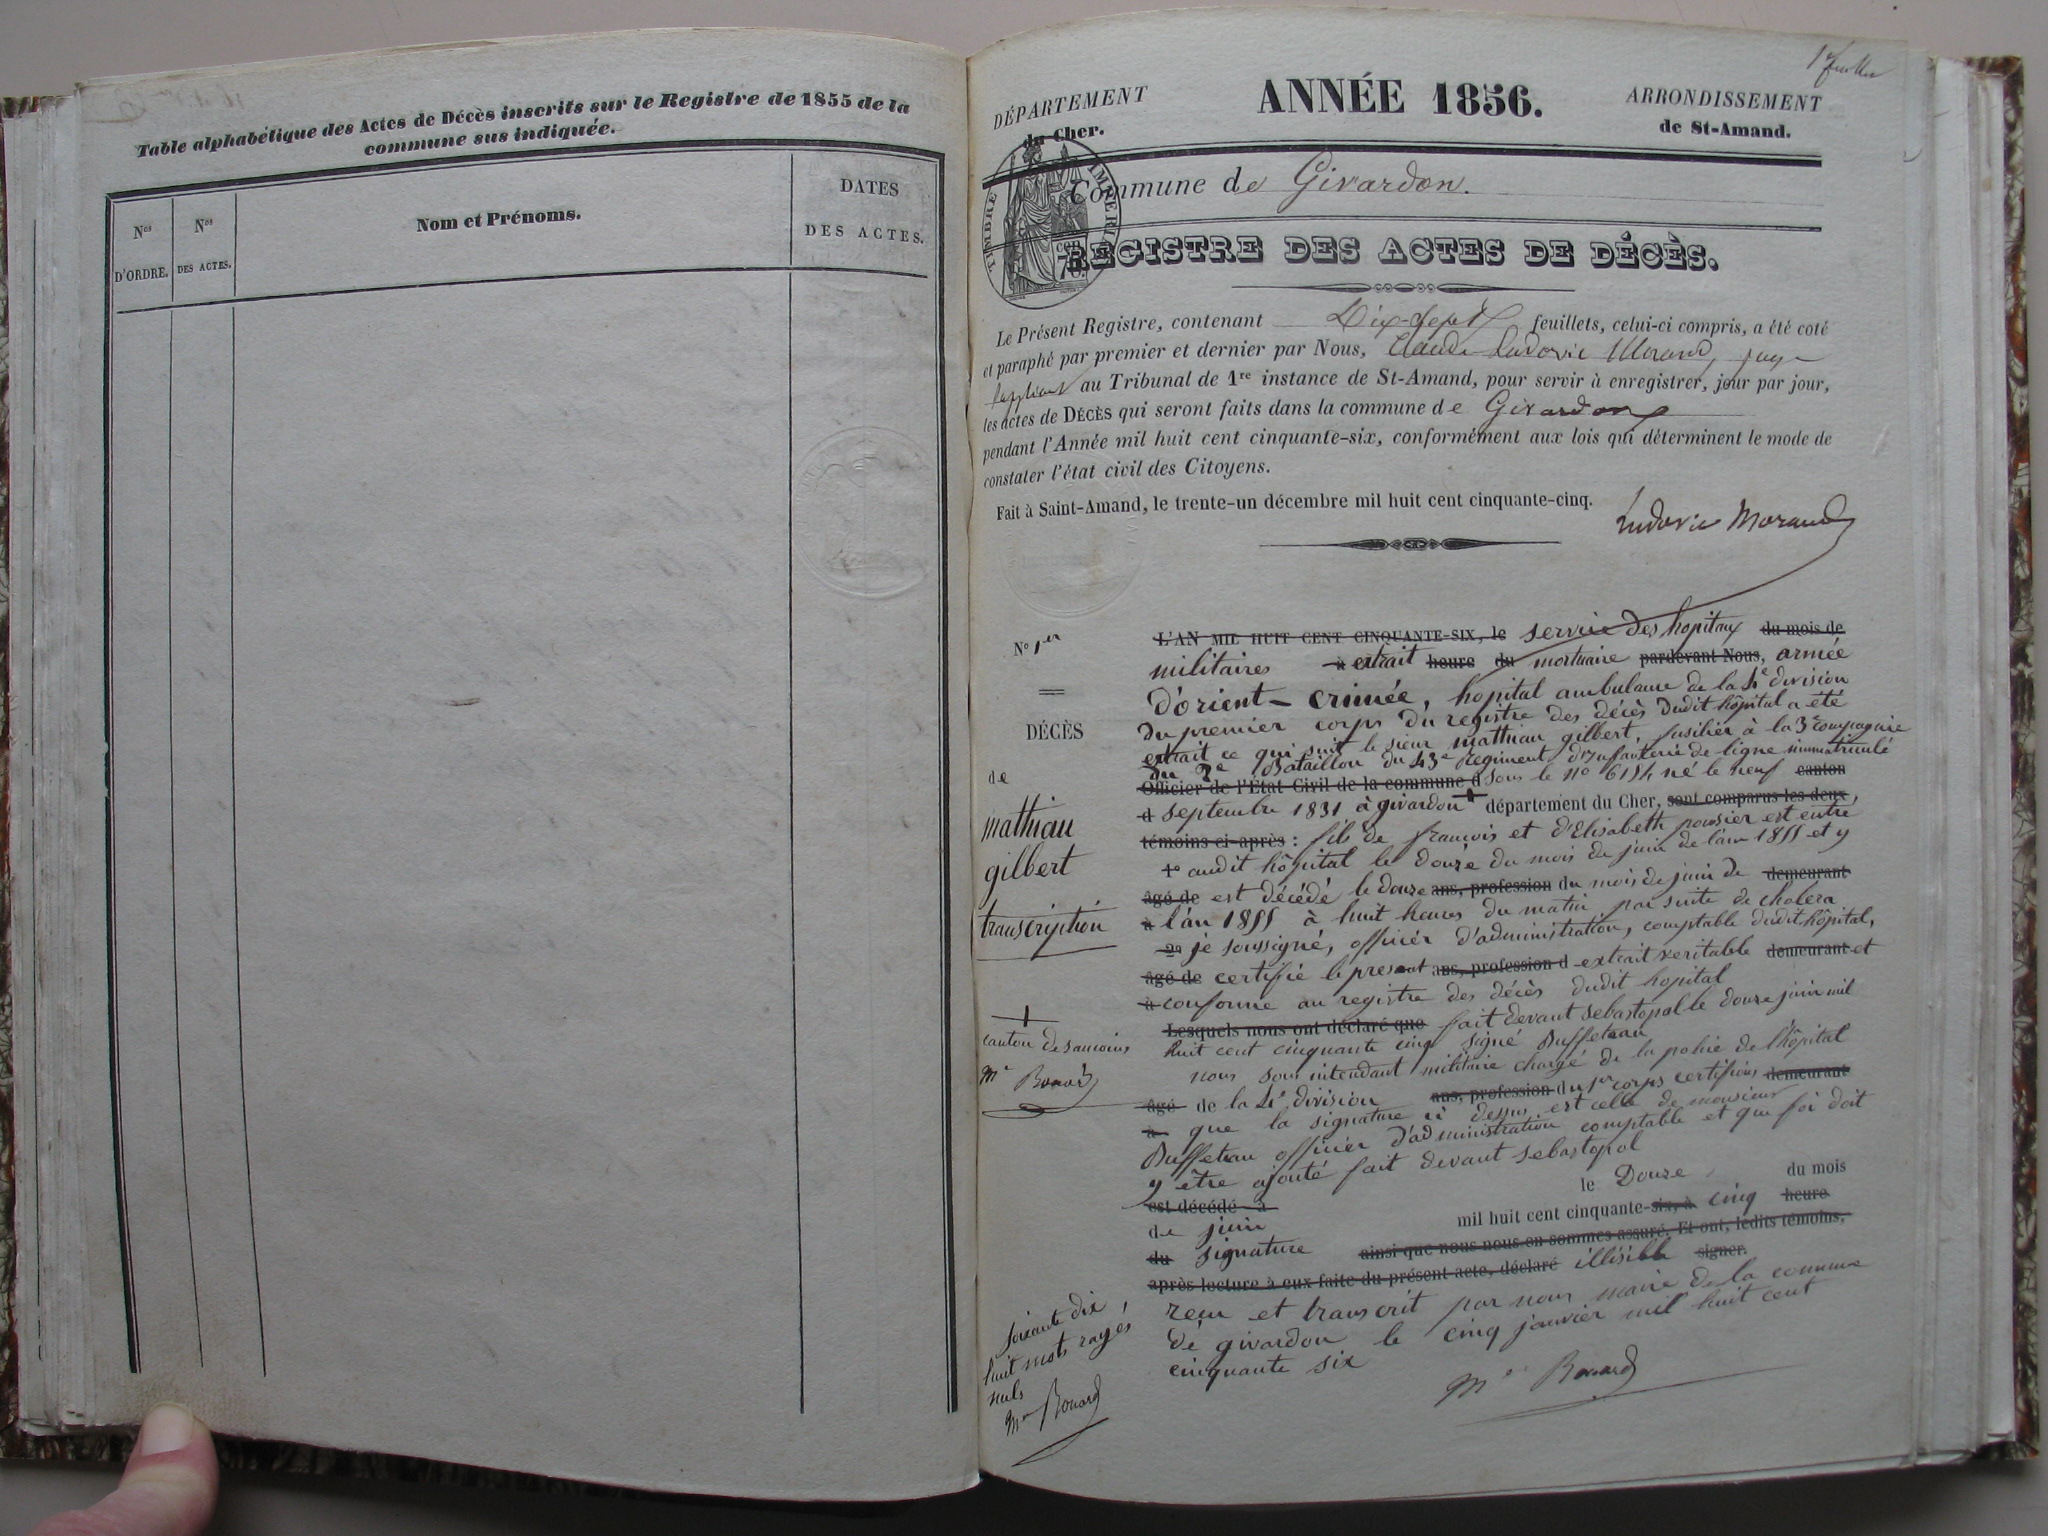 Table alphabétique des Actes de Décès inscrits sur le Registre de 1855 de la
commune sus indiquée.
Nos
D'ORDRE.
Nos
DES ACTES.
Nom et Prénoms.
DATES
DES ACTES.
1er feuillet
DÉPARTEMENT
du Cher.
ANNÉE 1856.
ARRONDISSEMENT
de St-Amand.
Commune de Givardon.
TIMBRE IMPERIAL
70 cen
REGISTRE DES ACTES DE DÉCÈS.
Le Présent Registre, contenant Dix-Sept feuillets, celui-ci compris, a été coté
et paraphé par premier et dernier par Nous, Claude Ludovic Morand, juge
suppléant au Tribunal de 1re instance de St-Amand, pour servir à enregistrer, jour par jour,
les actes de DÉCÈS qui seront faits dans la commune de Givardon
pendant l'Année mil huit cent cinquante-six, conformément aux lois qui déterminent le mode de
constater l'état civil des Citoyens.
Fait à Saint-Amand, le trente-un décembre mil huit cent cinquante-cinq.
Ludovic Morand
No 1er
DÉCÈS
de
mathiau
gilbert
transcription
L'AN MIL HUIT CENT CINQUANTE-SIX, le service des hopitaux du mois de
militaires à extrait heure du mortuaire pardevant Nous, armée
d'orient - crimée, hopital ambulance de la 4e division
du premier corps du registre des décès dudit hôpital a été
extrait ce qui suit le sieur mathiau gilbert, fusilier à la 3e compagnie
du 2e Bataillon du 43e Régiment d'Infanterie de ligne immatriculé
Officier de l'État Civil de la commune d sous le no 6154 né le neuf canton
d septembre 1831 à givardon département du Cher, sont comparus les deux
témoins ci-après : fils de françois et d'Elisabeth pousier est entré
1o audit hôpital le douze du mois de juin de l'an 1855 et y
âgé de est décédé le douze ans, profession du mois de juin de demeurant
à l'an 1855 à huit heures du matin par suite de choléra
2o je soussigné, officier d'administration, comptable dudit hôpital,
âgé de certifie le présent ans, profession d extrait veritable demeurant et
à conforme au registre des décès dudit hopital
Lesquels nous ont déclaré que fait devant sebastopol le douze juin mil
huit cent cinquante cinq signé Buffeteau
nous sous intendant militaire chargé de la police de l'hôpital
âgé de la 4e division ans, profession du 1er corps certifions demeurant
à que la signature ci dessus est celle de monsieur
Buffeteau officier d'administration comptable et que foi doit
y être ajouté fait devant sebastopol
est décédé à le Douze du mois
de juin mil huit cent cinquante-six, à cinq heure
du signature ainsi que nous nous en sommes assuré. Et ont, lédits témoins,
après lecture à eux faite du présent acte, déclaré illisible signer.
reçu et transcrit par nous maire de la commune
de givardon le cinq janvier mil huit cent
cinquante six
canton de sancoins
Mce Bonard
soixante dix
huit mots rayés
nuls
Mce Bonard
Mce Bonard